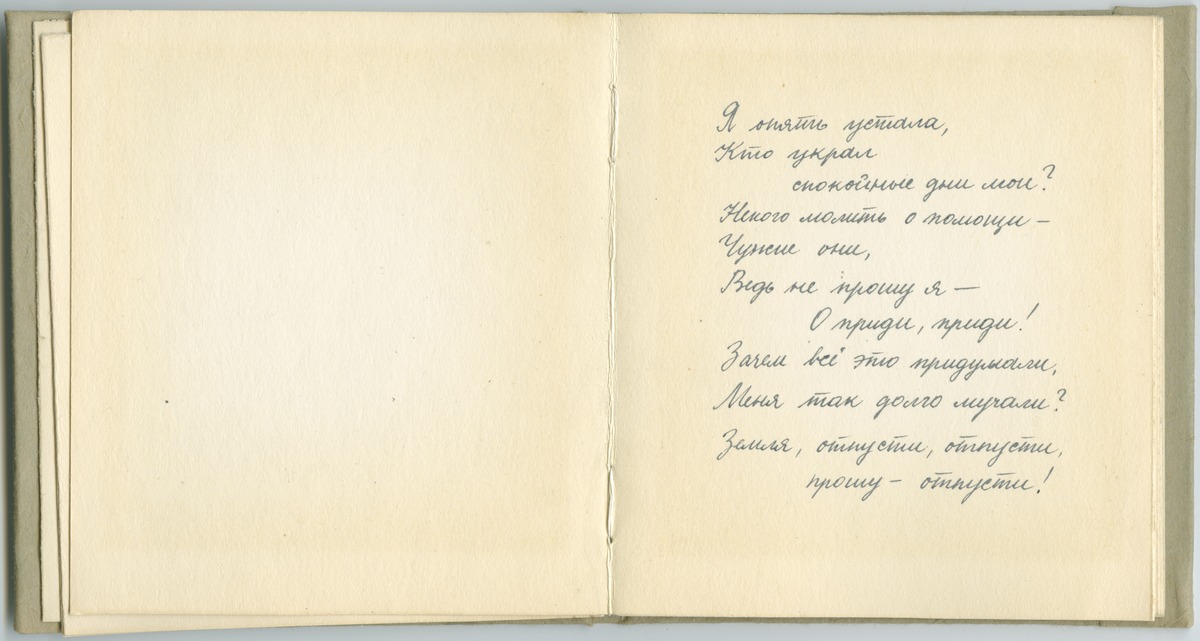 Я опять устала,
Кто украл
спокойные дни мои?
Некого молить о помощи –
Чужие они,
Ведь не прошу я –
О приди, приди!
Зачем всё это придумали,
Меня так долго мучали?
Земля, отпусти, отпусти,
прошу – отпусти!